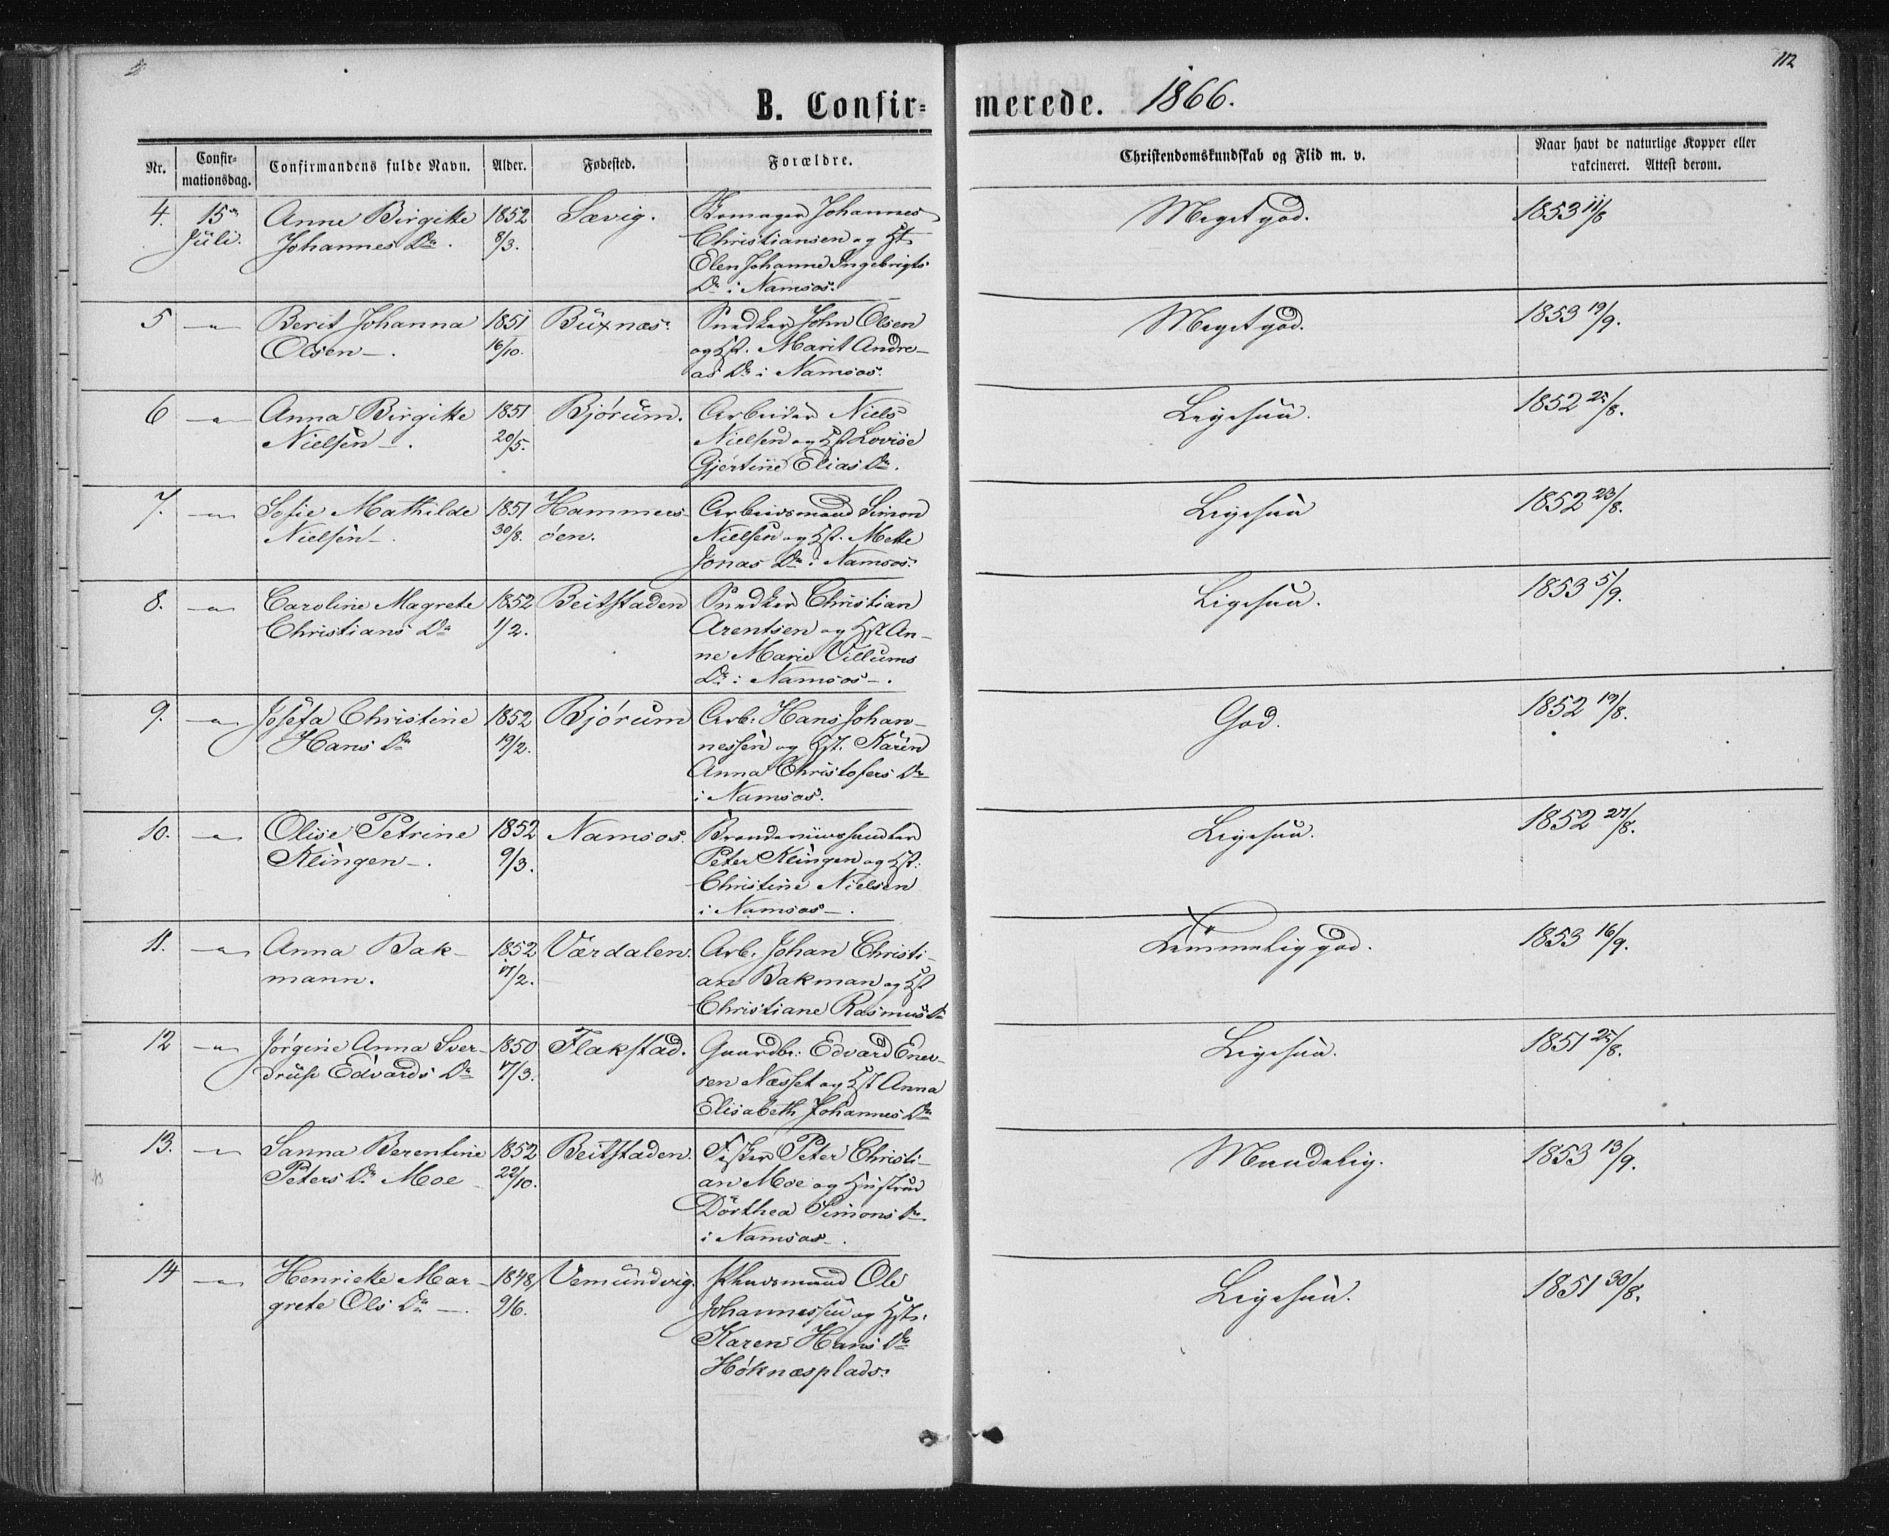 112
B. Confir-
merede. 1866.
Nr.
Confir-
mationsdag.
Confirmandens fulde Navn.
Alder.
Fødested.
Forældre.
Christendomskundskab og Flid m. v.
Naar havt de naturlige Kopper eller
vakcineret. Attest derom.
4. 15de Anne Birgitte 1852 Sævig. Johannes Meget god. 1853 11/8
Juli. Johannes Dr. 8/3. Christiansen og Hst
Elen Johanne Ingebrigts
Dr i Namsos.
5 — Berit Johanna 1851 Buxnæs. Snedker John Olsen Meget god. 1853 19/9.
Olsen —. 16/10. og Hst. Marit Andre-
as Dr i Namsos.
6 — Anna Birgitte 1851 Bjørum. Arbeider Niels Ligesaa. 1852 25/8.
Nielsen —. 20/5. Nielsen og Hst Lovise
Gjertine Elias Dr.
7. — Sofie Mathilde 1851 Hammers- Arbeidsmand Simon Ligesaa 1852 23/8.
Nielsen —. 30/8. öen. Nielsen og Hst. Mette
Jonas Dr i Namsos.
8. — Caroline Magrete 1852 Beitstaden Snedker Christian Ligesaa. 1853 5/9.
Christians Dr 1/2. Arentsen og Hst An-
ne Marie Villums
Dr i Namsos —.
9. — Josefa Christine 1852 Bjørum Arb. Hans Johan- God. 1852 19/8.
Hans Dr 19/2. nessen og Hst. Karen
Anna Christofers Dr
i Namsos.
10. — Olise Petrine 1852 Namsos. Ligesaa. 1852 27/8.
Klingen —. 9/3. Peter Klingen og Hst.
Christine Nielsen
i Namsos —.
11. — Anna Bak- 1852 Værdalen. Arb. Johan Christi- Temmelig god. 1853 16/9.
mann. 17/2. an Bakman og Hst
Christiane Rasmus Dr
12 — Jørgine Anna Sver- 1850 Flakstad. Gaardbr. Edvard Ener- Ligesaa. 1851 25/8.
drup Edvards Dr 17/3. sen Næsset og Hst Anna
Elisabeth Johannes Dr
13. — Sanna Berentine 1852 Beitstaden. Fisker Peter Christi- Maadelig. 1853 13/9.
Peters Dr Moe 22/10. an Moe og Hustrue
Dorthea Simons Dr
i Namsos —.
14 — Henrieke Mar- 1848 Vemundvig. Pladsmand Ole Ligesaa. 1851 30/8.
grete Ols Dr —. 9/6. Johannessen og Hst.
Karen Hans Dr
Høknæsplads.